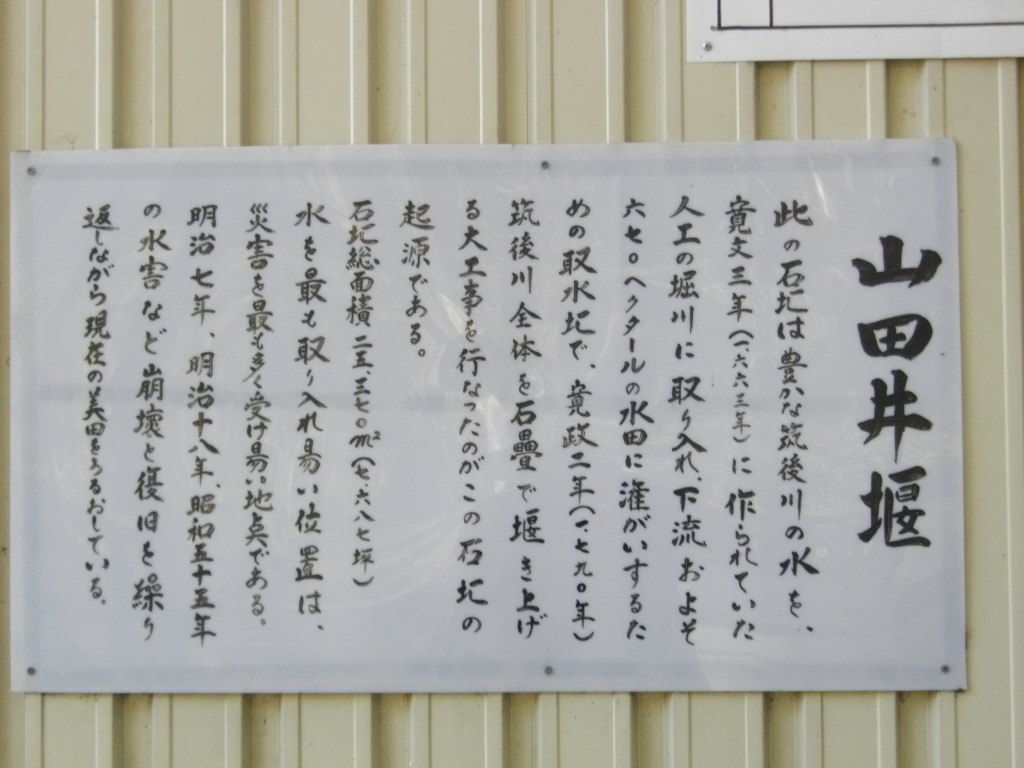 山田井堰
此の石圯は豊かな筑後川の水を、
寛文三年(一、六六三年)に作られていた
人工の堀川に取り入れ、下流およそ
六七〇ヘクタールの水田に潅がいするた
めの取水圯で、寛政二年(一、七九〇年)
筑後川全体を石疊で堰き上げ
る大工事を行なったのがこの石圯の
起源である。
石圯総面積二五、三七〇m²(七、六八七坪)
水を最も取り入れ易い位置は、
災害を最も多く受け易い地点である。
明治七年、明治十八年、昭和五十五年
の水害など崩壊と復旧を繰り
返しながら現在の美田をうるおしている。